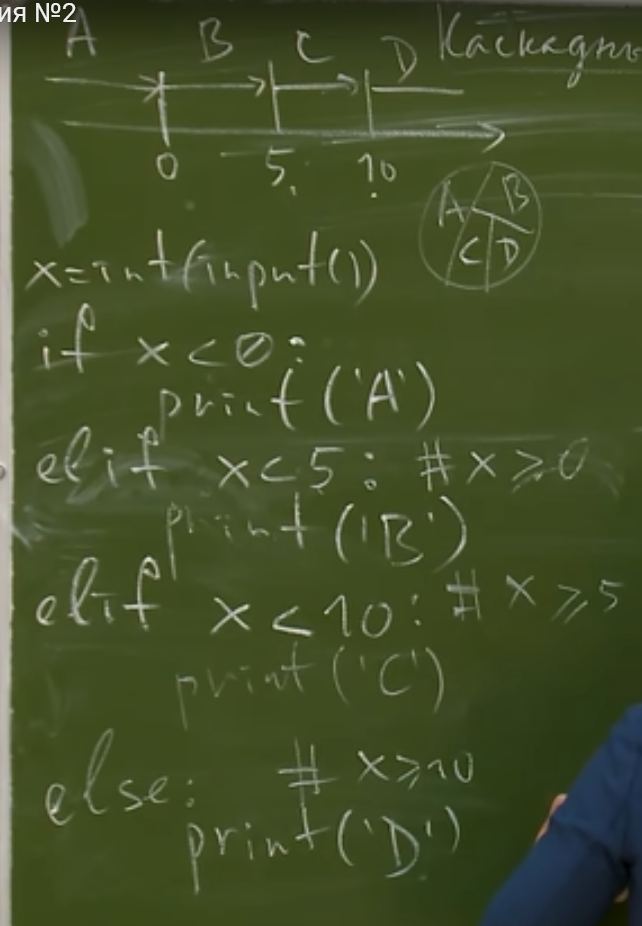 ия №2
A B C D Каскадны
0 5 10
A B
C D
x=int(input())
if x<0:
print('A')
elif x<5: #x⩾0
print('B')
elif x<10: # x⩾5
print('C')
else: # x⩾10
print('D')